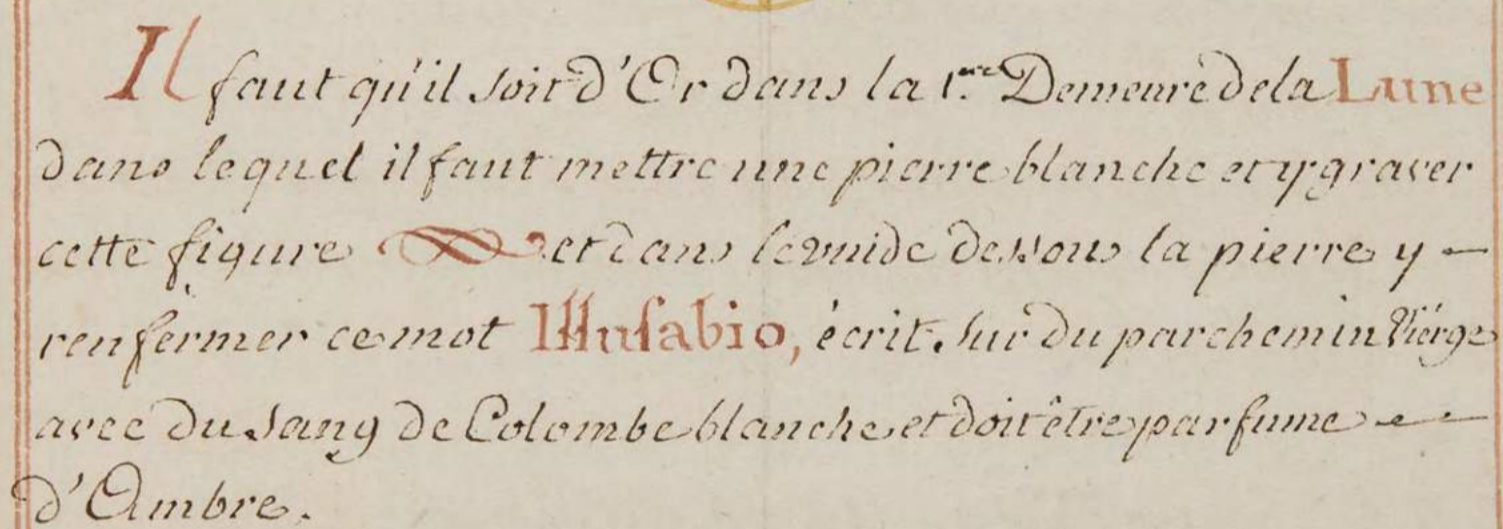 Il faut qu'il soit d'Or dans la 1.ere Demeure de la Lune
dans lequel il faut mettre une pierre blanche et y graver
cette figure et dans le vuide dessous la pierre y —
renfermer ce mot Illusabio, écrit sur du parchemin Viérge
avec du sang de Colombe blanche et doit être parfume —
d'Ambre.